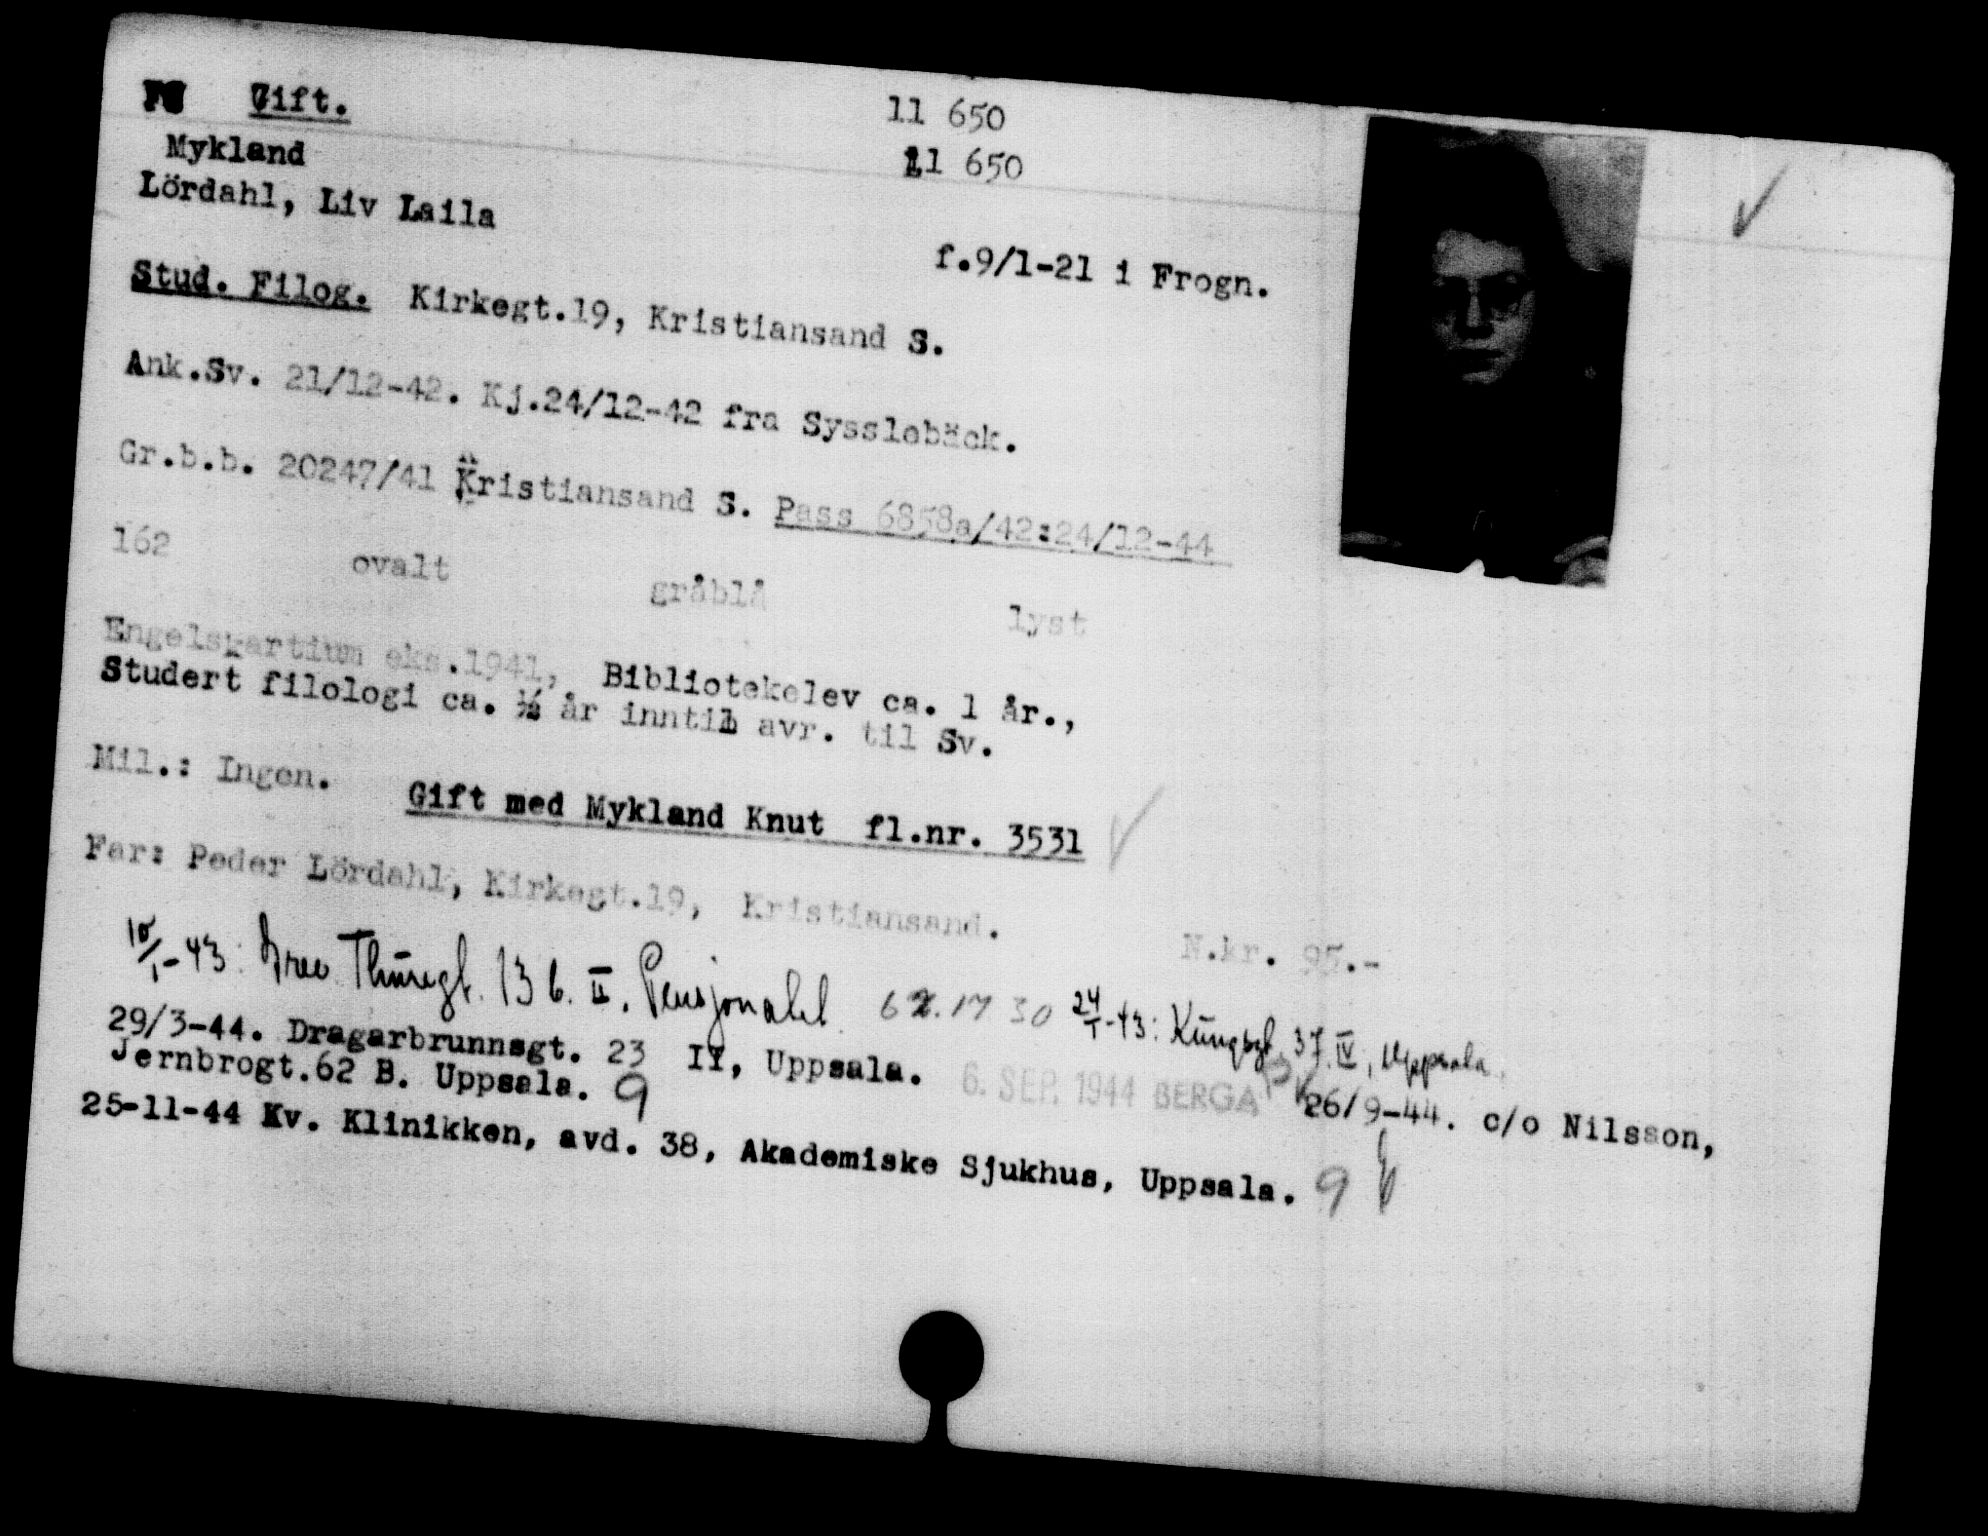 Gift. 11 650
Mykland 11 650
Lördahl, Liv Laila
f.9/1-21 i Frogn.
Stud. Filog. Kirkegt.19, Kristiansand S.
Ank.Sv. 21/12-42. Kj.24/12-42 fra Sysslebäck.
Gr.b.b. 20247/41 Kristiansand S. Pass 6858a/42:24/12-44
162 ovalt gråblå lyst
Engelskartium eks.1941, Bibliotekelev ca. 1 år.,
Studert filologi ca. ½ år inntil avr. til Sv.
Mil.: Ingen.
Gift med Mykland Knut fl.nr. 3531
Far: Peder Lördahl, Kirkegt.19, Kristiansand.
N.kr. 95.-
10/1-43: Thuregt. 13 b. II. Pensjonatet. 62.17 30 24/1-43: Kungsgt. 37 IV, Uppsala.
29/3-44. Dragarbrunnsgt. 23 II, Uppsala. 6. SEP. 1944 BERGA 26/9-44. c/o Nilsson,
Jernbrogt.62 B. Uppsala. 9
25-11-44 Kv. Klinikken, avd. 38, Akademiske Sjukhus, Uppsala. 9